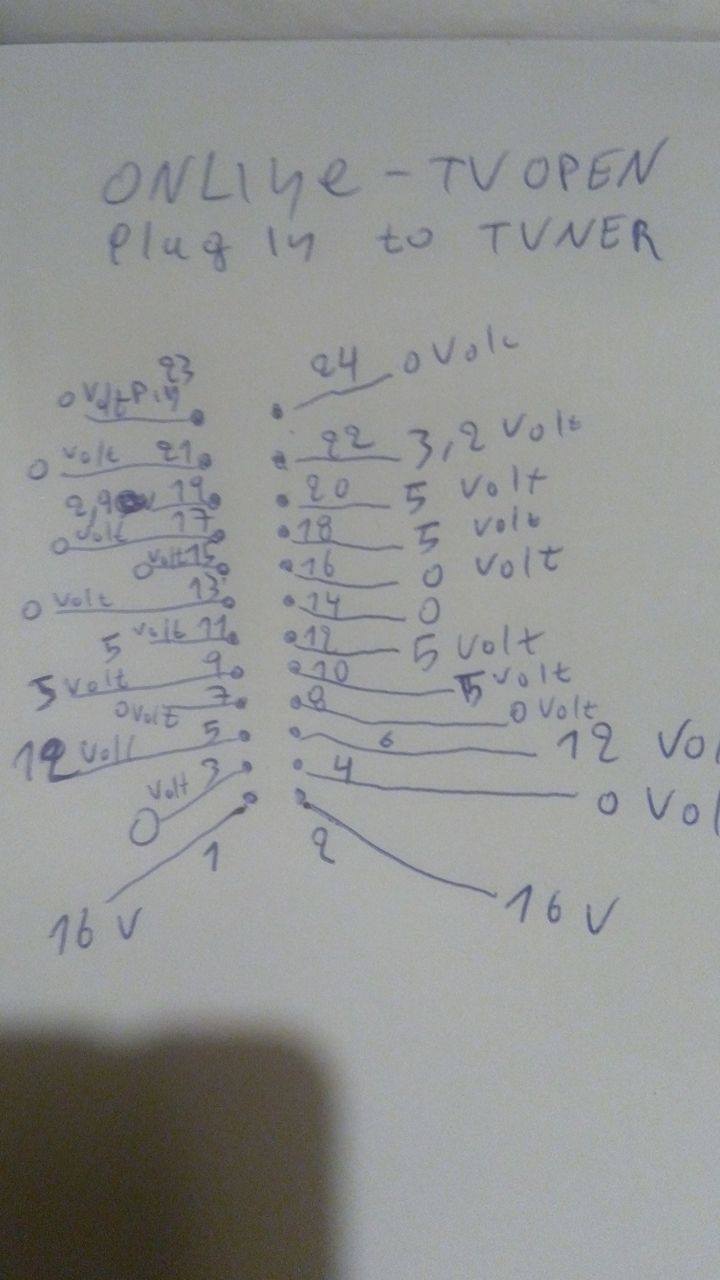 ONLIne - TV OPEN
Plug In to TUNER
23 24 0 Volt
0 Volt Pin
0 volt 21 22 3,2 Volt
2,9 v 19 20 5 volt
0 volt 17 18 5 volt
0 volt 15 16 0 volt
0 volt 13 14 0
5 volt 11 12 5 volt
5 volt 9 10 5 volt
0 volt 7 8 0 Volt
12 Volt 5 6 12 Vo
0 Volt 3 4 0 Vol
1 2
16 V 16 V